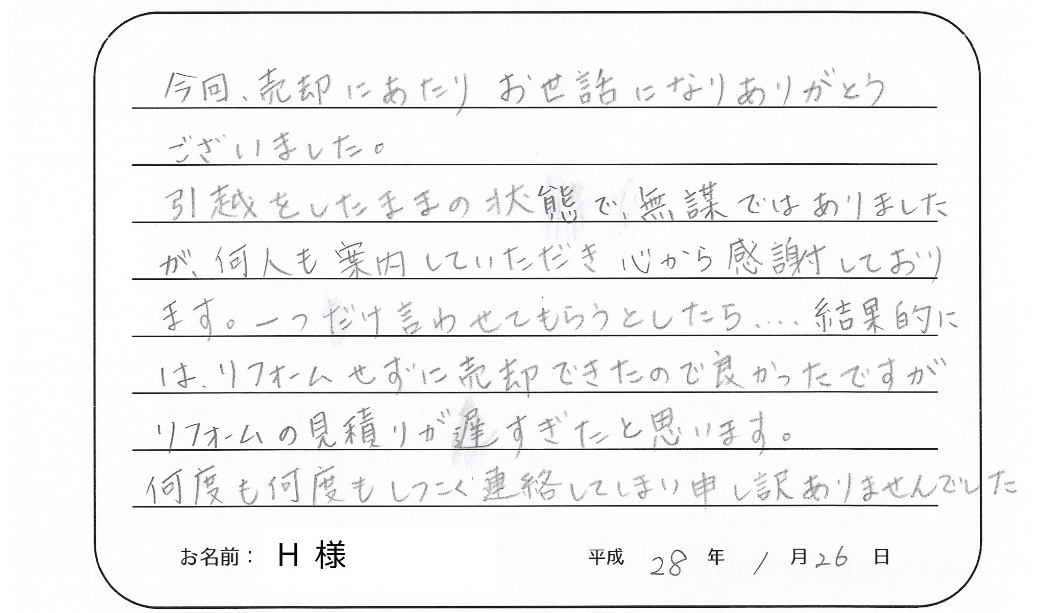 今回、売却にあたり お世話になりありがとう
ございました。
引越をしたままの状態で、無謀ではありました
が、何人も案内していただき心から感謝しており
ます。一つだけ言わせてもらうとしたら....結果的に
は、リフォームせずに売却できたので良かったですが
リフォームの見積りが遅すぎたと思います。
何度も何度もしつこく連絡してしまい申し訳ありませんでした
お名前： H 様 平成 28 年 1 月 26 日